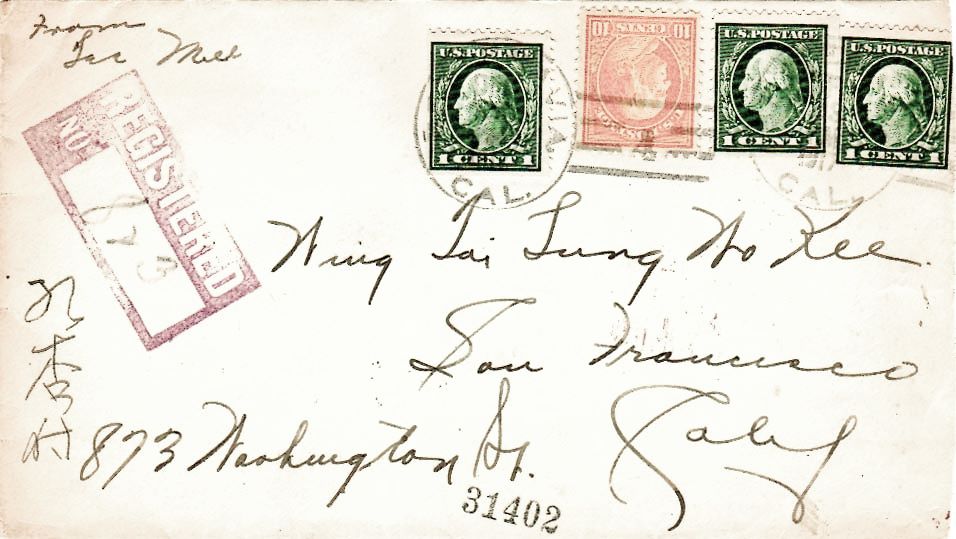 From
U.S. POSTAGE
1 CENT 1
10 CENTS 10
U.S. POSTAGE
U.S. POSTAGE
1 CENT 1
U.S. POSTAGE
1 CENT 1
CAL.
CAL.
REGISTERED
NO.
Wing Tai Lung Wo Kee
San Francisco
873 Washington St.
Calif
31402